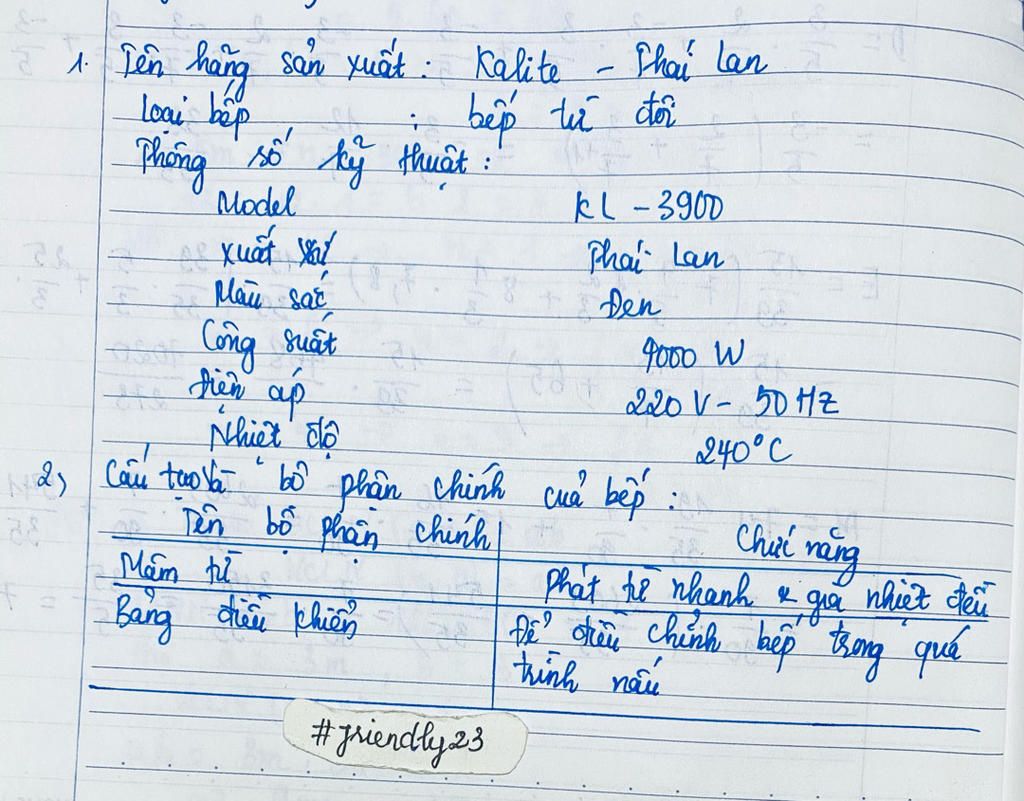 1. Tên hãng sản xuất : Kalite - Thái Lan
Loại bếp : bếp từ đôi
Thông số kỹ thuật :
Model KL - 3900
Xuất xứ Thái Lan
Màu sắc Đen
Công suất 4000 W
Điện áp 220 V - 50 HZ
Nhiệt độ 240°C
2) Cấu tạo và bộ phận chính của bếp :
Tên bộ phận chính Chức năng
Mâm từ Phát từ nhanh & gia nhiệt đều
Bảng điều khiển Để điều chỉnh bếp trong quá
trình nấu
#friendly23